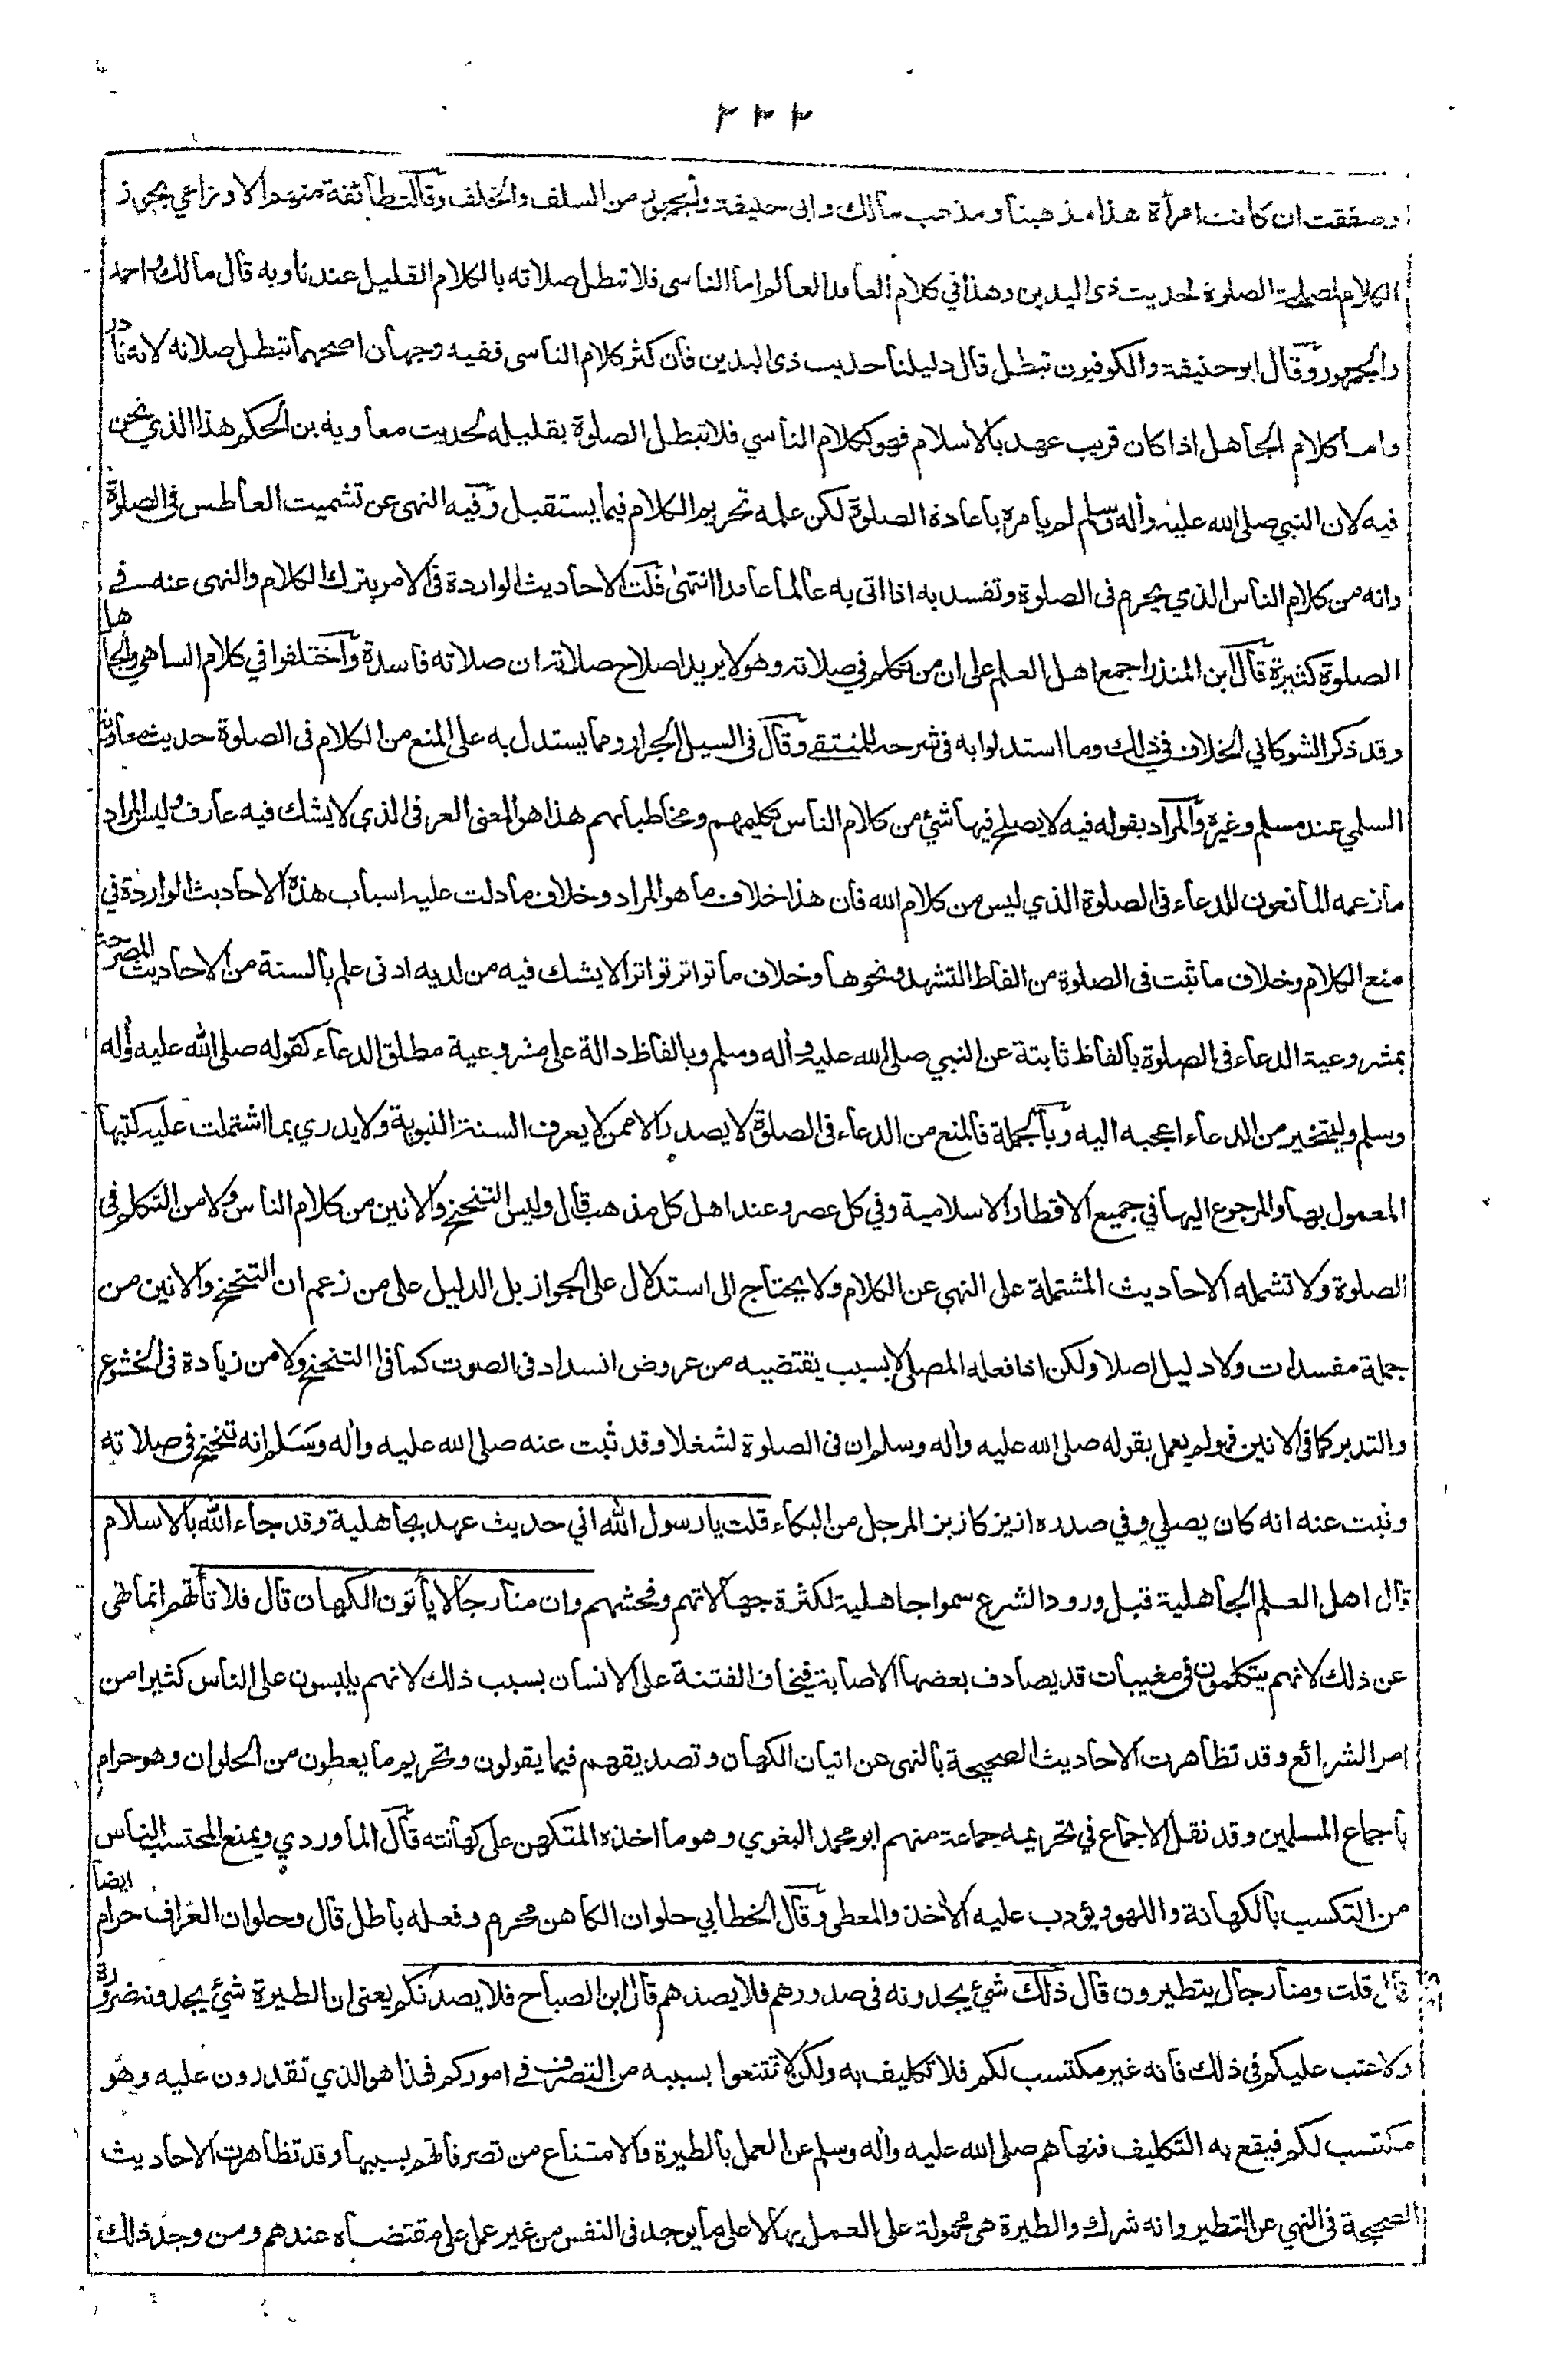 ٢٢٢
وصفقت ان كانت امرأة هذا مذهبنا ومذهب مالك وابى حنيفة والجمهور من السلف والخلف وقالت طائفة منهم الاوزاعي يجوز
الكلام لمصلحة الصلوة لحديث ذى اليدين وهذا في كلام العامد العالم اما الناسى فلا تبطل صلاته بالكلام القليل عندنا وبه قال مالك واحمد
والجمهور وقال ابو حنيفة والكوفيون تبطل قال دليلنا حديث ذى اليدين فان كثر كلام الناسى ففيه وجهان اصحهما تبطل صلاته لانه نادر
واما كلام الجاهل اذا كان قريب عهد بالاسلام فهو ككلام الناسي فلا تبطل الصلوة بقليله لحديث معاوية بن الحكم هذا الذي نحن
فيه لان النبي صلى الله عليه واله وسلم لم يامره باعادة الصلوة لكن علمه تحريم الكلام فيما يستقبل وفيه النهى عن تشميت العاطس فى الصلوة
وانه من كلام الناس الذي يحرم فى الصلوة وتفسد به اذا اتى به عالما عامدا انتهى قلت الاحاديث الواردة فى الامر بترك الكلام والنهى عنه في
الصلوة كثيرة قال ابن المنذر اجمع اهل العلم على ان من تكلم في صلاته وهو لا يريد اصلاح صلاته ان صلاته فاسدة واختلفوا في كلام الساهي والجاهل
وقد ذكر الشوكاني الخلاف في ذلك وما استدلوا به فى شرحه للمنتقى وقال فى السيل الجرار ومما يستدل به على المنع من الكلام فى الصلوة حديث معاوية
السلمي عند مسلم وغيره والمراد بقوله فيه لا يصلح فيها شئ من كلام الناس تكليمهم ومخاطباتهم هذا هو المعنى العرفى الذي لا يشك فيه عارف وليس المراد
ما زعمه المانعون للدعاء فى الصلوة الذي ليس من كلام الله فان هذا خلاف ما هو المراد وخلاف ما دلت عليه اسباب هذه الاحاديث الواردة في
منع الكلام وخلاف ما ثبت فى الصلوة من الفاظ التشهد ونحوها وخلاف ما تواتر تواترا لا يشك فيه من لديه ادنى علم بالسنة من الاحاديث المصرحة
بمشروعية الدعاء فى الصلوة بالفاظ ثابتة عن النبي صلى الله عليه واله وسلم وبالفاظ دالة على مشروعية مطلق الدعاء كقوله صلى الله عليه واله
وسلم وليتخير من الدعاء اعجبه اليه وبالجملة فالمنع من الدعاء فى الصلوة لا يصدر الا ممن لا يعرف السنة النبوية ولا يدري بما اشتملت عليه كتبها
المعمول بها والمرجوع اليها في جميع الاقطار الاسلامية وفي كل عصر وعند اهل كل مذهب قال وليس التنحنح والانين من كلام الناس ولا من التكلم فى
الصلوة ولا تشمله الاحاديث المشتملة على النهي عن الكلام ولا يحتاج الى استدلال على الجواز بل الدليل على من زعم ان التنحنح والانين من
جملة مفسدات ولا دليل اصلا ولكن اذا فعله المصلي لا بسبب يقتضيه من عروض انسداد فى الصوت كما فى التنحنح ولا من زيادة فى الخشوع
والتدبر كما فى الانين فهو لم يعمل بقوله صلى الله عليه واله وسلم ان فى الصلوة لشغلا وقد ثبت عنه صلى الله عليه واله وسلم انه تنحنح فى صلاته
وثبت عنه انه كان يصلي وفي صدره ازيز كازيز المرجل من البكاء قلت يا رسول الله اني حديث عهد بجاهلية وقد جاء الله بالاسلام
قال اهل العلم الجاهلية قبل ورود الشرع سموا جاهلية لكثرة جهالاتهم وفحشهم وان منا رجالا يأتون الكهان قال فلا تأتهم انما نهى
عن ذلك لانهم يتكلمون فى مغيبات قد يصادف بعضها الاصابة فيخاف الفتنة على الانسان بسبب ذلك لانهم يلبسون على الناس كثيرا من
امر الشرائع وقد تظاهرت الاحاديث الصحيحة بالنهى عن اتيان الكهان وتصديقهم فيما يقولون وتحريم ما يعطون من الحلوان وهو حرام
باجماع المسلمين وقد نقل الاجماع في تحريمه جماعة منهم ابو محمد البغوي وهو ما اخذه المتكهن على كهانته قال الماوردي ويمنع المحتسب الناس
من التكسب بالكهانة واللهو ويؤدب عليه الاخذ والمعطى وقال الخطابي حلوان الكاهن محرم وفعله باطل قال وحلوان العراف حرام ايضا
قال قلت ومنا رجال يتطيرون قال ذلك شئ يجدونه فى صدورهم فلا يصدهم قال ابن الصباح فلا يصدنكم يعنى ان الطيرة شئ يجدونه ضرورة
ولا عتب عليكم في ذلك فانه غير مكتسب لكم فلا تكليف به ولكن لا تمتنعوا بسببه من التصرف في اموركم فهذا هو الذي تقدرون عليه وهو
مكتسب لكم فيقع به التكليف فنهاهم صلى الله عليه واله وسلم عن العمل بالطيرة والامتناع من تصرفاتهم بسببها وقد تظاهرت الاحاديث
الصحيحة فى النهي عن التطير وانه شرك والطيرة هى محمولة على العمل بها لا على ما يوجد فى النفس من غير عمل على مقتضاه عندهم ومن وجد ذلك